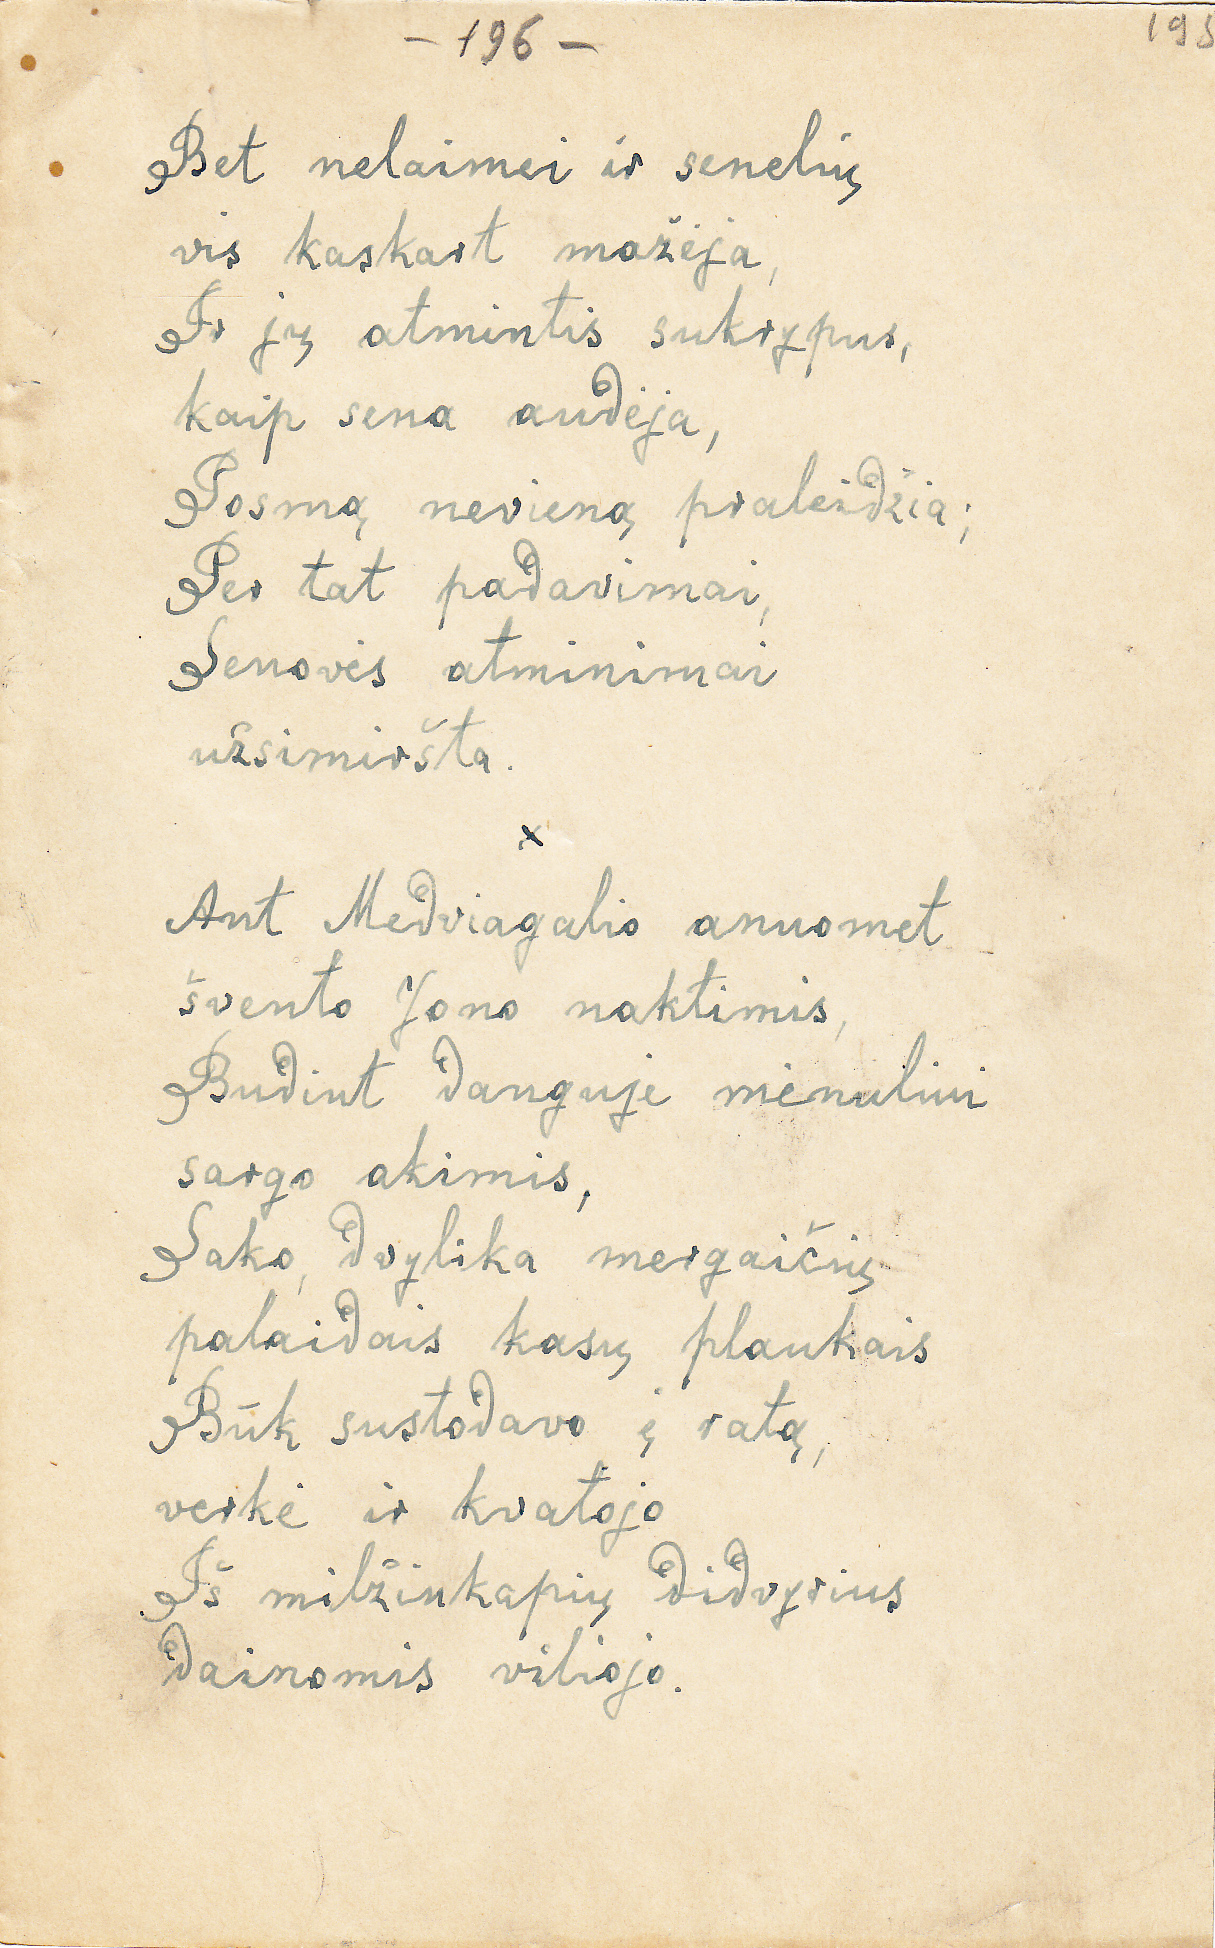 – 196 –
195
Bet nelaimei ir senelių
vis kaskart mažėja,
Ir jų atmintis sukrypus,
kaip sena audėja,
Posmą nevieną praleidžia;
Per tat padavimai,
Senovės atminimai
užsimiršta.
x
Ant Medviagalio anuomet
švento Jono naktimis,
Budint danguje mėnuliui
sargo akimis,
Sako, dvylika mergaičių
palaidais kasų plaukais
Būk sustodavo į ratą,
verkė ir kvatojo
Iš milžinkapių didvyrius
dainomis viliojo.